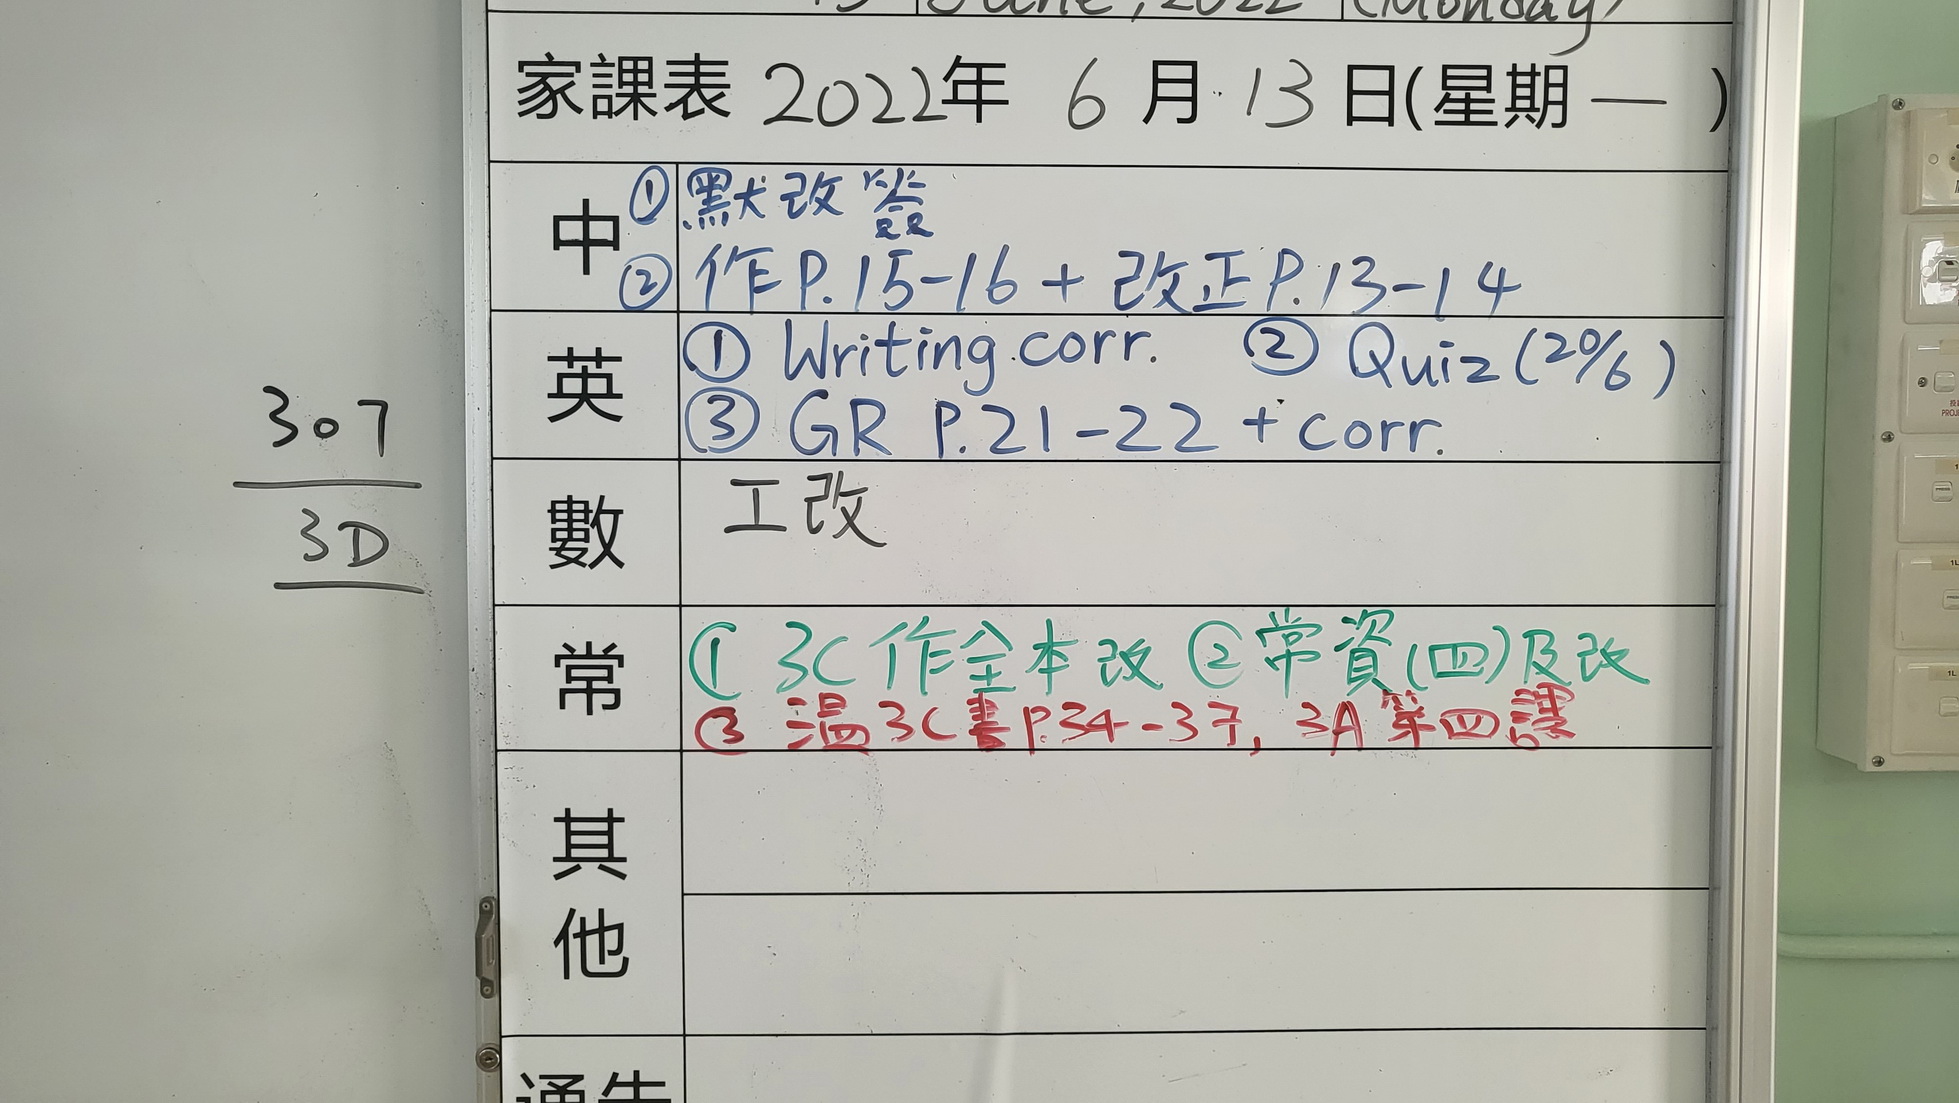 13 June, 2022 (Monday)
家課表 2022年 6月13日(星期一)
中 ①默改簽
②作P.15-16 + 改正P.13-14
英 ① Writing corr. ② Quiz (20%)
③ GR P.21-22 + corr.
數 工改
常 ① 3C作全本改 ②常資(四)及改
③ 溫3C書P.34-37, 3A第四課
其他
通告
307
3D